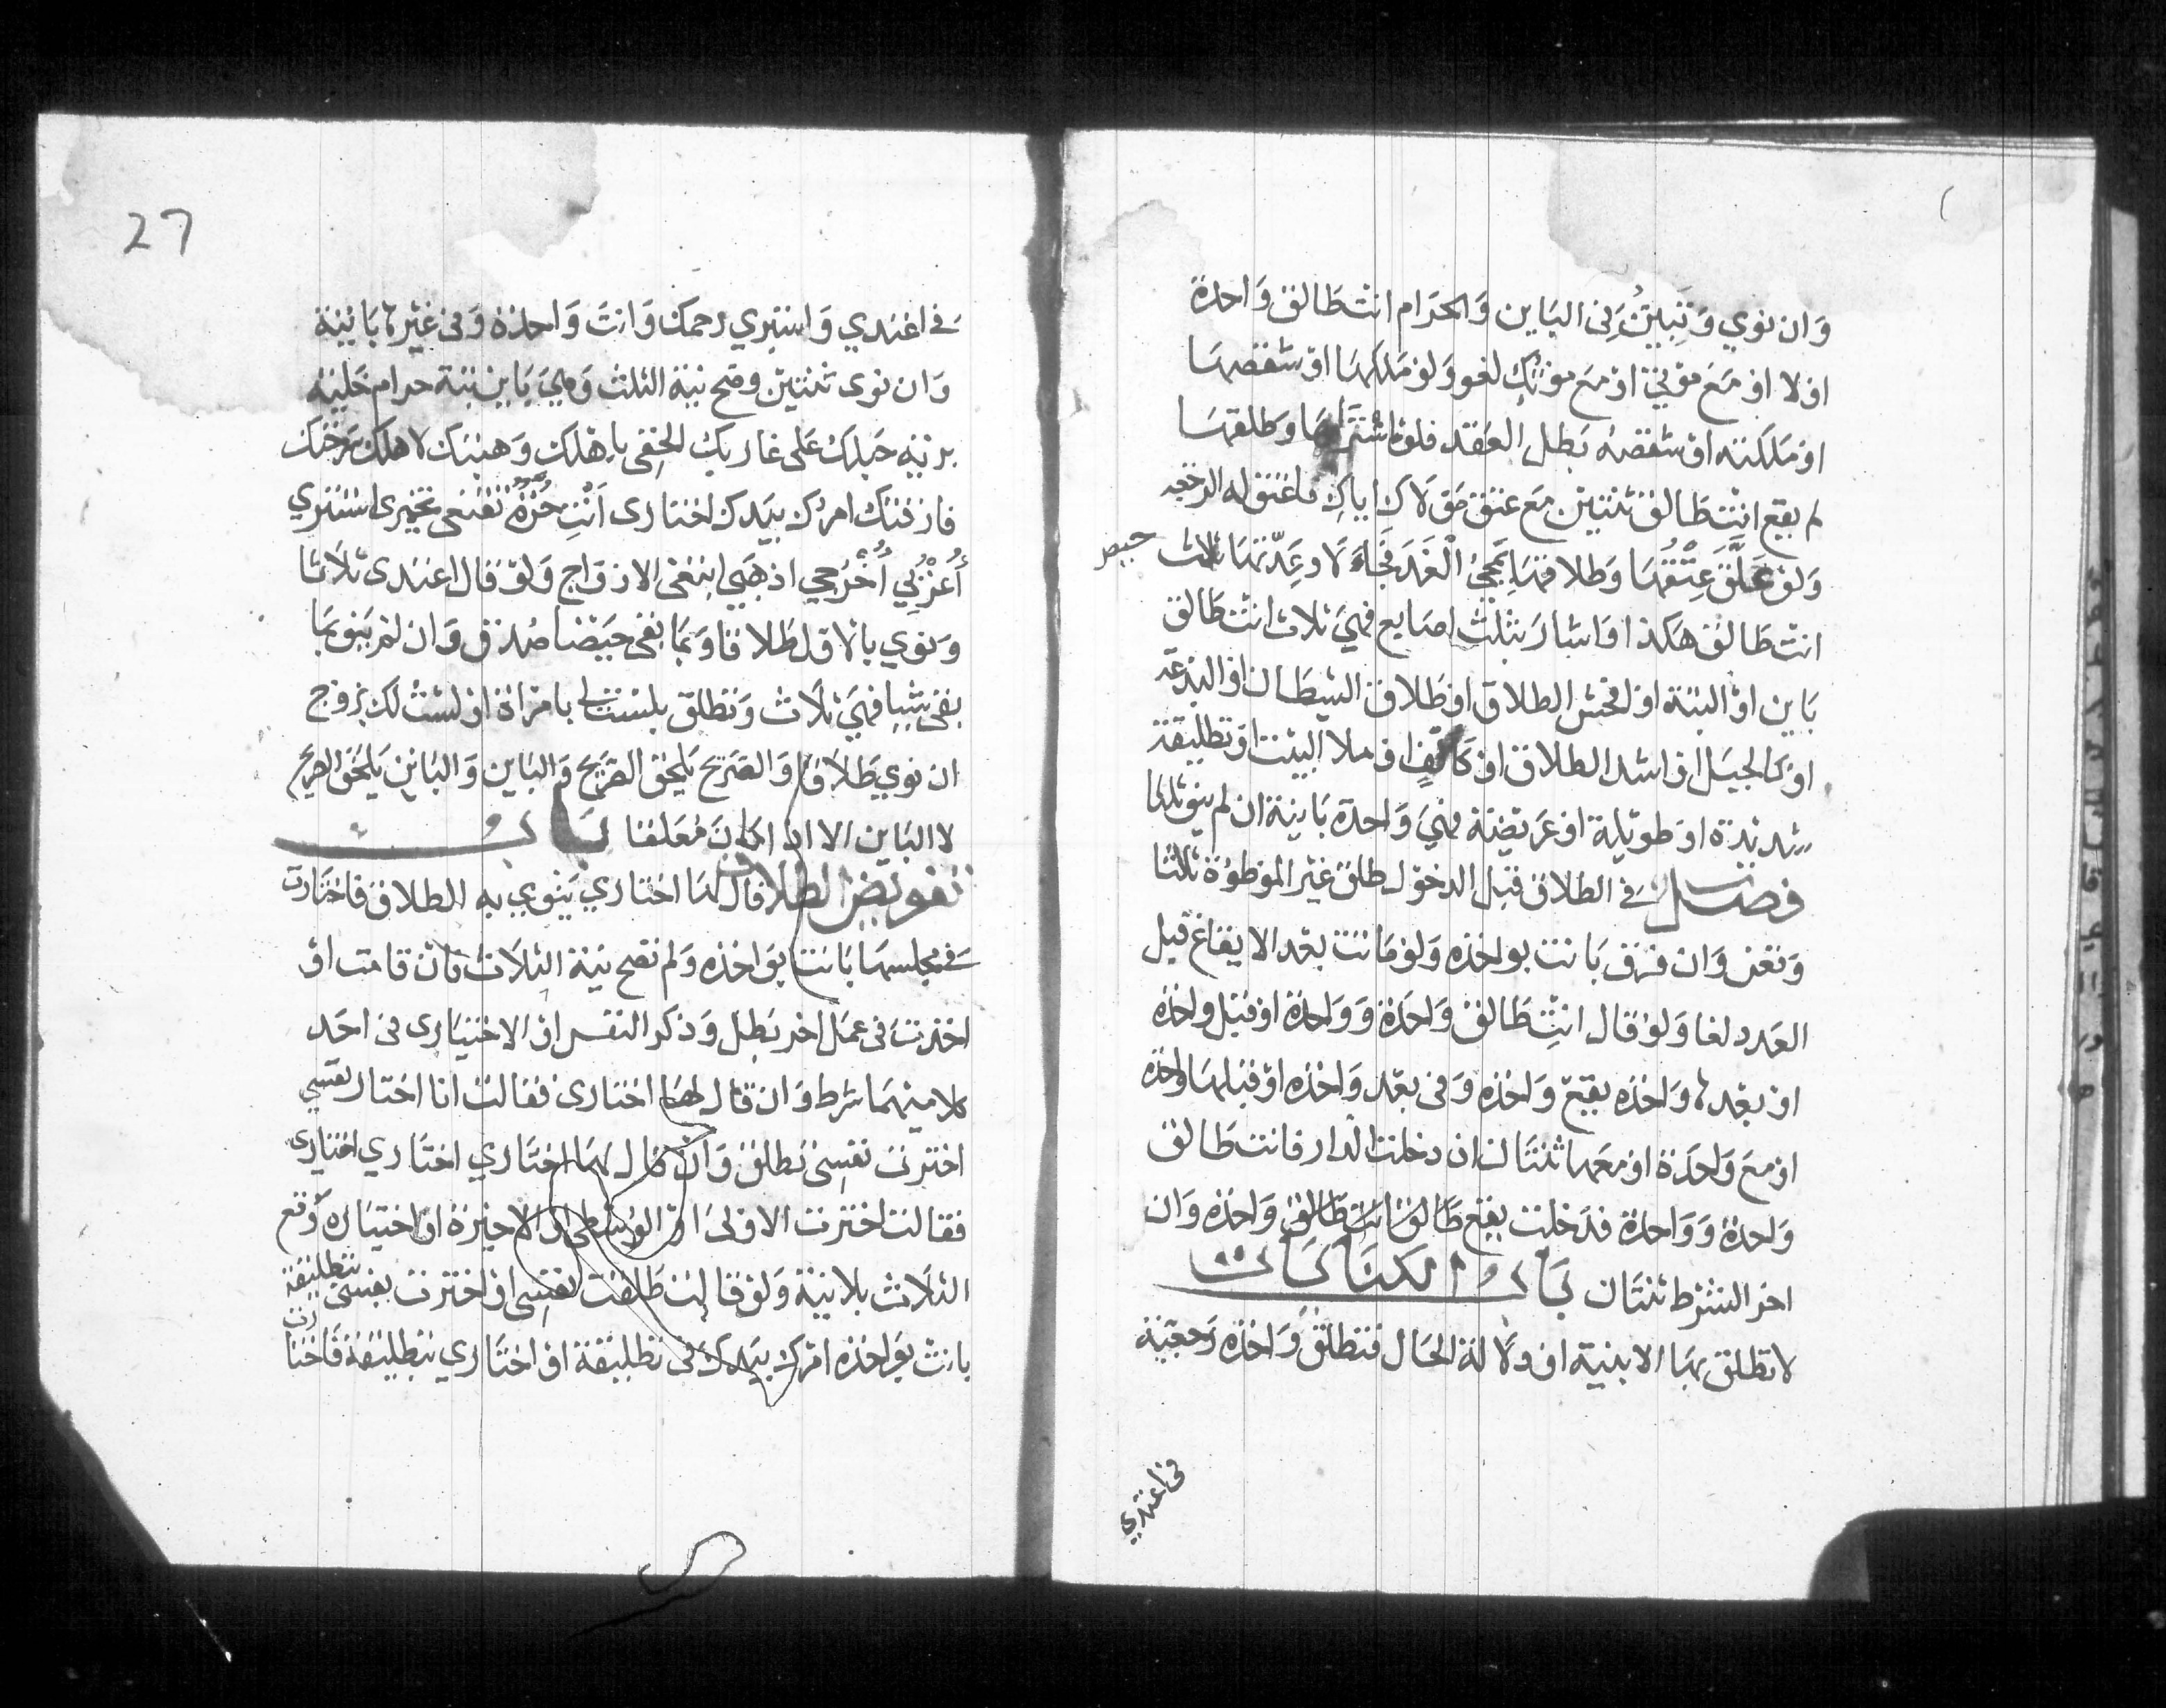 وان نوي وتبين في الباين والحرام انت طالق واحدة
او لا او مع موتي او مع موتك لغو ولو ملكها او شقصها
او ملكته او شقصه بطل العقد فلو اشتراها وطلقها
لم يقع انت طالق ثنتين مع عتق مولاك اياك فاعتق له الرجعه
ولو علق عتقها وطلاقها بمجئ الغد فجاء لا وعدتها ثلاث حيض
انت طالق هكذا واشار بثلث اصابع فهي ثلاث انت طالق
باين او البتة او افحش الطلاق او طلاق الشيطان او البدعة
او كالجبل او اشد الطلاق او كالف او ملا البيت او تطليقة
شديدة او طويلة او عريضة فهي واحدة باينة ان لم ينو ثلثا
فصل في الطلاق قبل الدخول طلق غير الموطوءة ثلثا
وقعن وان فرق بانت بواحده ولو ماتت بعد الايقاع قبل
العدد لغا ولو قال انت طالق واحدة وواحدة او قبل واحدة
او بعدها واحده يقع واحده وفي بعد واحده او قبلها واحدة
او مع واحدة او معها ثنتان ان دخلت الدار فانت طالق
واحدة وواحدة فدخلت يقع طالق انت طالق واحده وان
اخر الشرط ثنتان باب الكنايات
لا تطلق بها الا بنية او دلالة الحال فتطلق واحده رجعية
في اعتدي
27
في اعتدي واستبري رحمك وانت واحدة وفي غيرها باينة
وان نوى ثنتين وصح نية الثلث وهي باين بتة حرام خلية
برية حبلك على غاربك الحقي باهلك وهبتك لاهلك سرحتك
فارقتك امرك بيدك اختارى انت حرة تقنعي تخمرى استتري
أغربي أخرجي اذهبي ابتغي الازواج ولو قال اعتدى ثلاثا
ونوي بالاول طلاقا وبما بقى حيضا صدق وان لم ينو بما
بقي شيا فهي ثلاث وتطلق بلست لي بامراة او لست لك بزوج
ان نوي طلاقا والصريح يلحق الصريح والباين والباين يلحق الصريح
لا الباين الا اذا كان معلقا باب
تفويض الطلاق قال لها اختاري ينوي به الطلاق فاختارت
في مجلسها بانت بواحده ولم تصح نية الثلاث فان قامت او
اخذت في عمل اخر بطل وذكر النفس او الاختيارى في احد
كلاميهما شرط وان قال لها اختارى فقالت انا اختار نفسي
اخترت نفسي تطلق وان قال لها اختاري اختاري اختيارى
فقالت اخترت الاولى او الوسطى او الاخيرة او اختياره وقع
الثلاث بلا نية ولو قالت طلقت نفسي او اخترت نفسي بتطليقة
بانت بواحده امرك بيدك في تطليقة او اختاري بتطليقة فاختارت